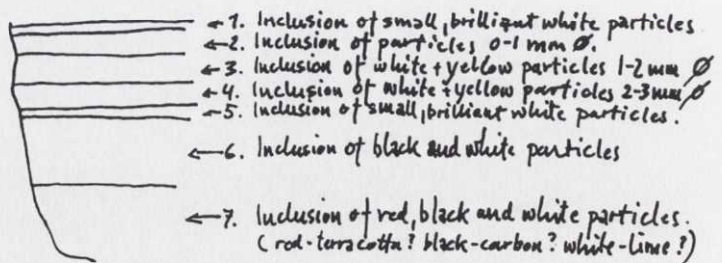 ←1. Inclusion of small, brilliant white particles
←2. Inclusion of particles 0-1 mm Ø.
←3. Inclusion of white + yellow particles 1-2 mm Ø
←4. Inclusion of white + yellow particles 2-3 mm Ø
←5. Inclusion of small, brilliant white particles.
←6. Inclusion of black and white particles
←7. Inclusion of red, black and white particles.
(red-terracotta? black-carbon? white-lime?)